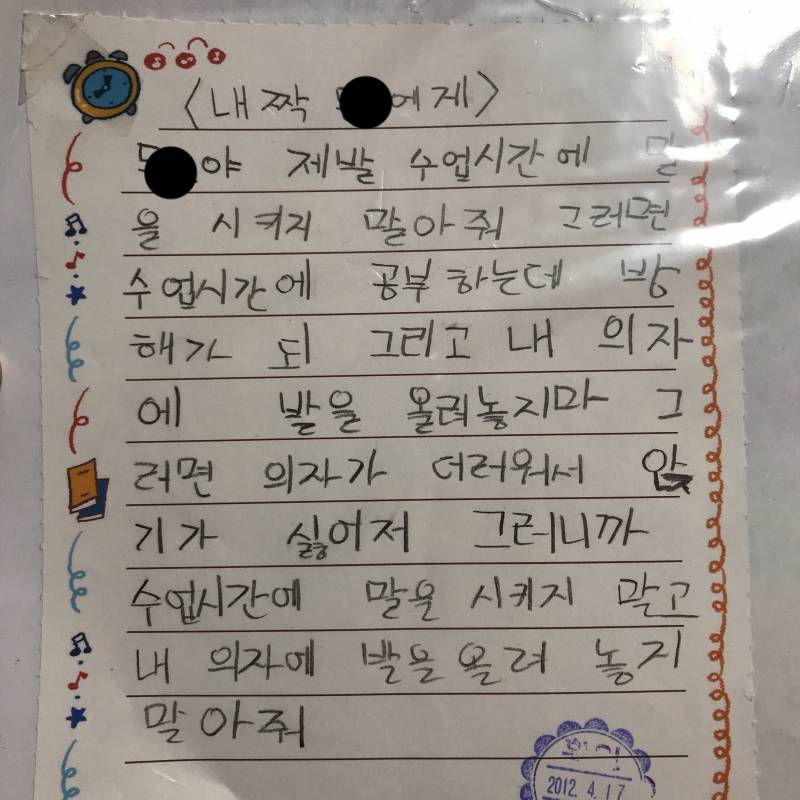 <내짝 에게>
야 제발 수업시간에 말
을 시키지 말아줘 그러면
수업시간에 공부하는데 방
해가 되 그리고 내 의자
에 발을 올려놓지마 그
러면 의자가 더러워서 앉
기가 싫어저 그러니까
수업시간에 말을 시키지 말고
내 의자에 발을 올려 놓지
말아줘
2012. 4. 17